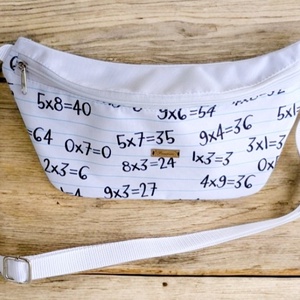 5x8=40 9x6=54
64 5x7=35 9x4=36
0x7=0 3x1=3
2x3=6 8x3=24 1x3=3
9x3=27 4x9=36